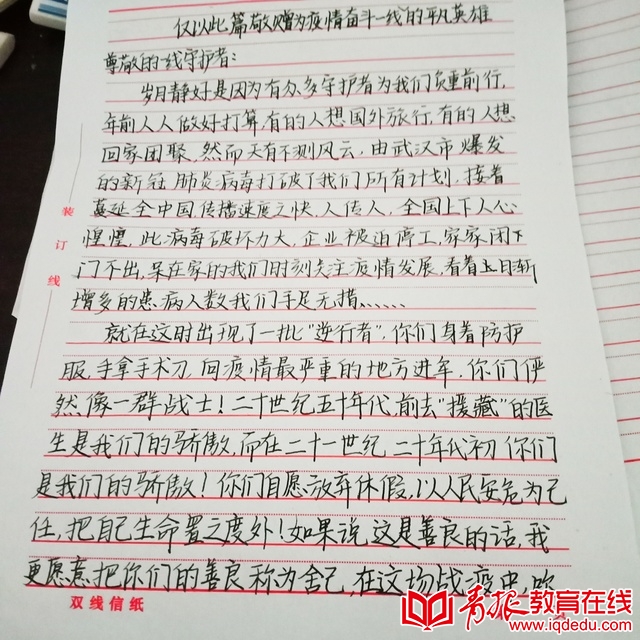 仅以此篇敬赠为疫情奋斗一线的平凡英雄
尊敬的一线守护者：
岁月静好是因为有众多守护者为我们负重前行，
年前人人做好打算，有的人想国外旅行，有的人想
回家团聚，然而天有不测风云，由武汉市爆发
的新冠肺炎病毒打破了我们所有计划，接着
蔓延全中国，传播速度之快，人传人，全国上下人心
惶惶，此病毒破坏力大，企业被迫停工，家家闭下
门不出，呆在家的我们时刻关注疫情发展，看着日渐
增多的患病人数我们手足无措……
就在这时出现了一批“逆行者”，你们身着防护
服，手拿手术刀，向疫情最严重的地方进军，你们俨
然像一群战士！二十世纪五十年代，前去“援藏”的医
生是我们的骄傲，而在二十一世纪二十年代初你们
是我们的骄傲！你们自愿放弃休假，以人民安危为己
任，把自己生命置之度外！如果说，这是善良的话，我
更愿意把你们的善良称为舍己，在这场战疫中，
装订线
双线信纸
青报教育在线
www.iqdedu.com